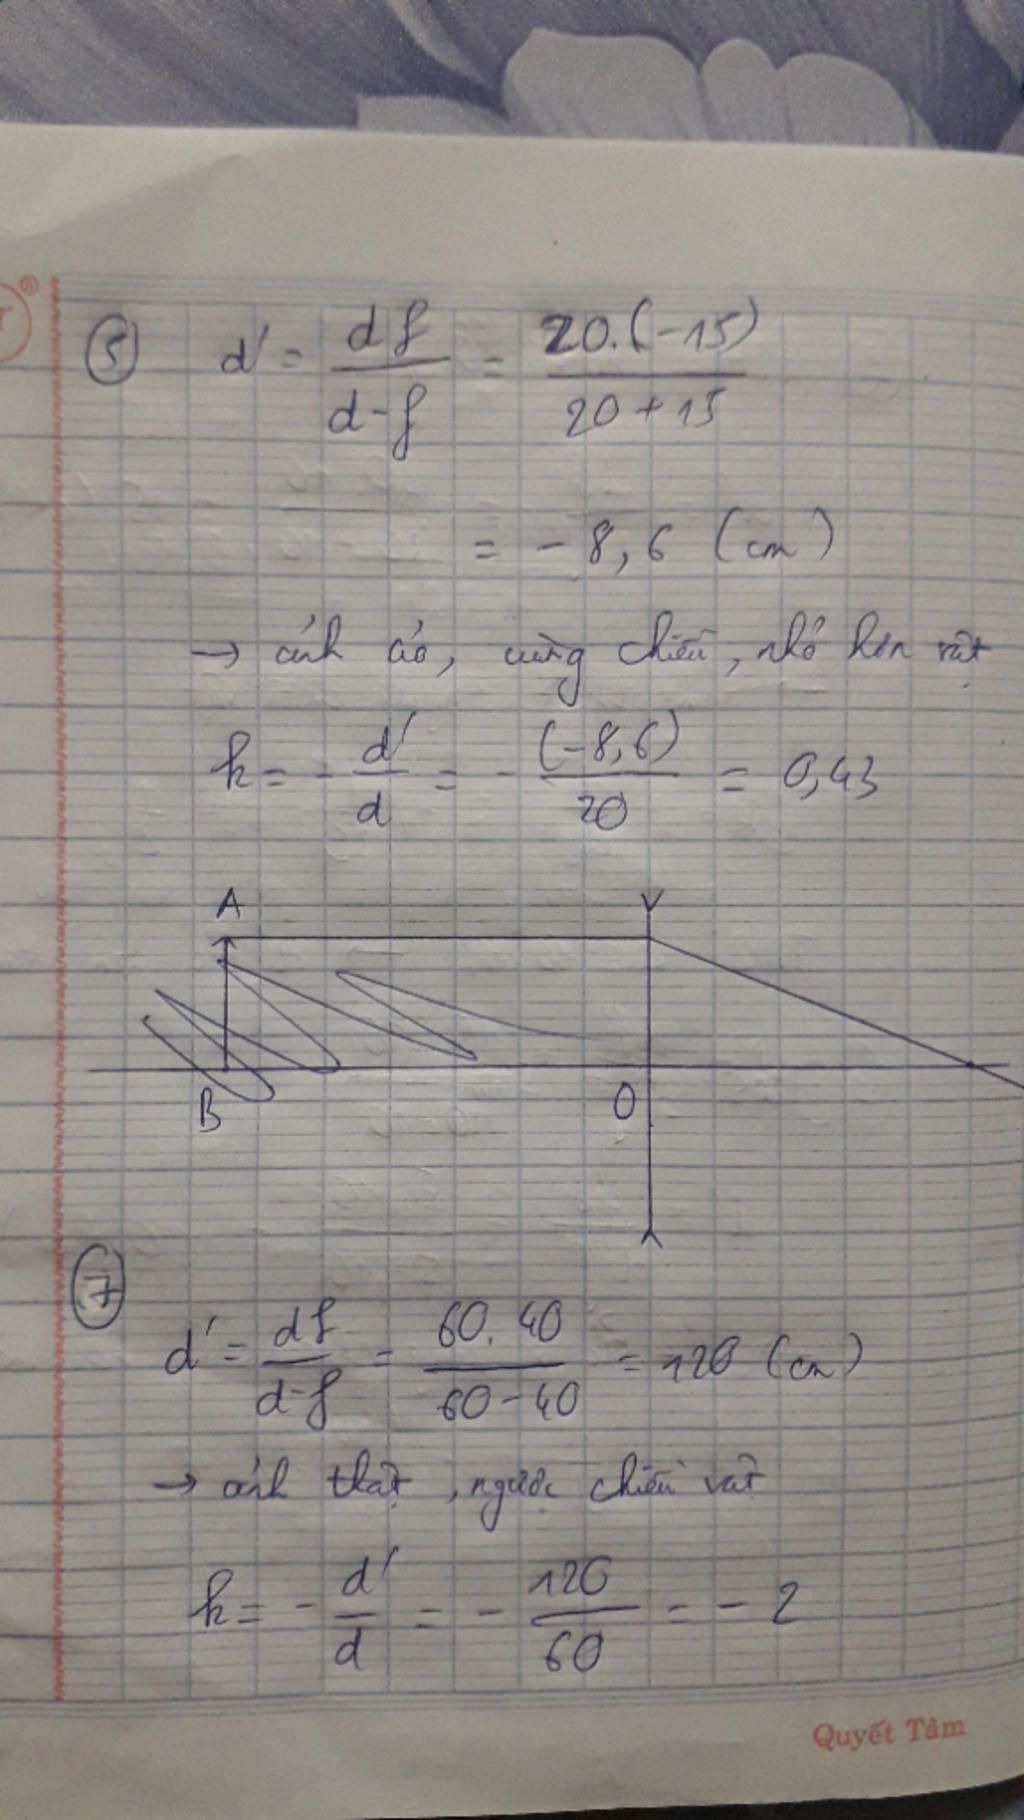 ®
5 d' = df / d-f = 20.(-15) / 20+15
= - 8,6 (cm)
→ ảnh ảo, cùng chiều, nhỏ hơn vật
k = - d' / d = - (-8,6) / 20 = 0,43
A
B
O
7
d' = df / d-f = 60.40 / 60-40 = 120 (cm)
→ ảnh thật, ngược chiều vật
k = - d' / d = - 120 / 60 = - 2
Quyết Tâm